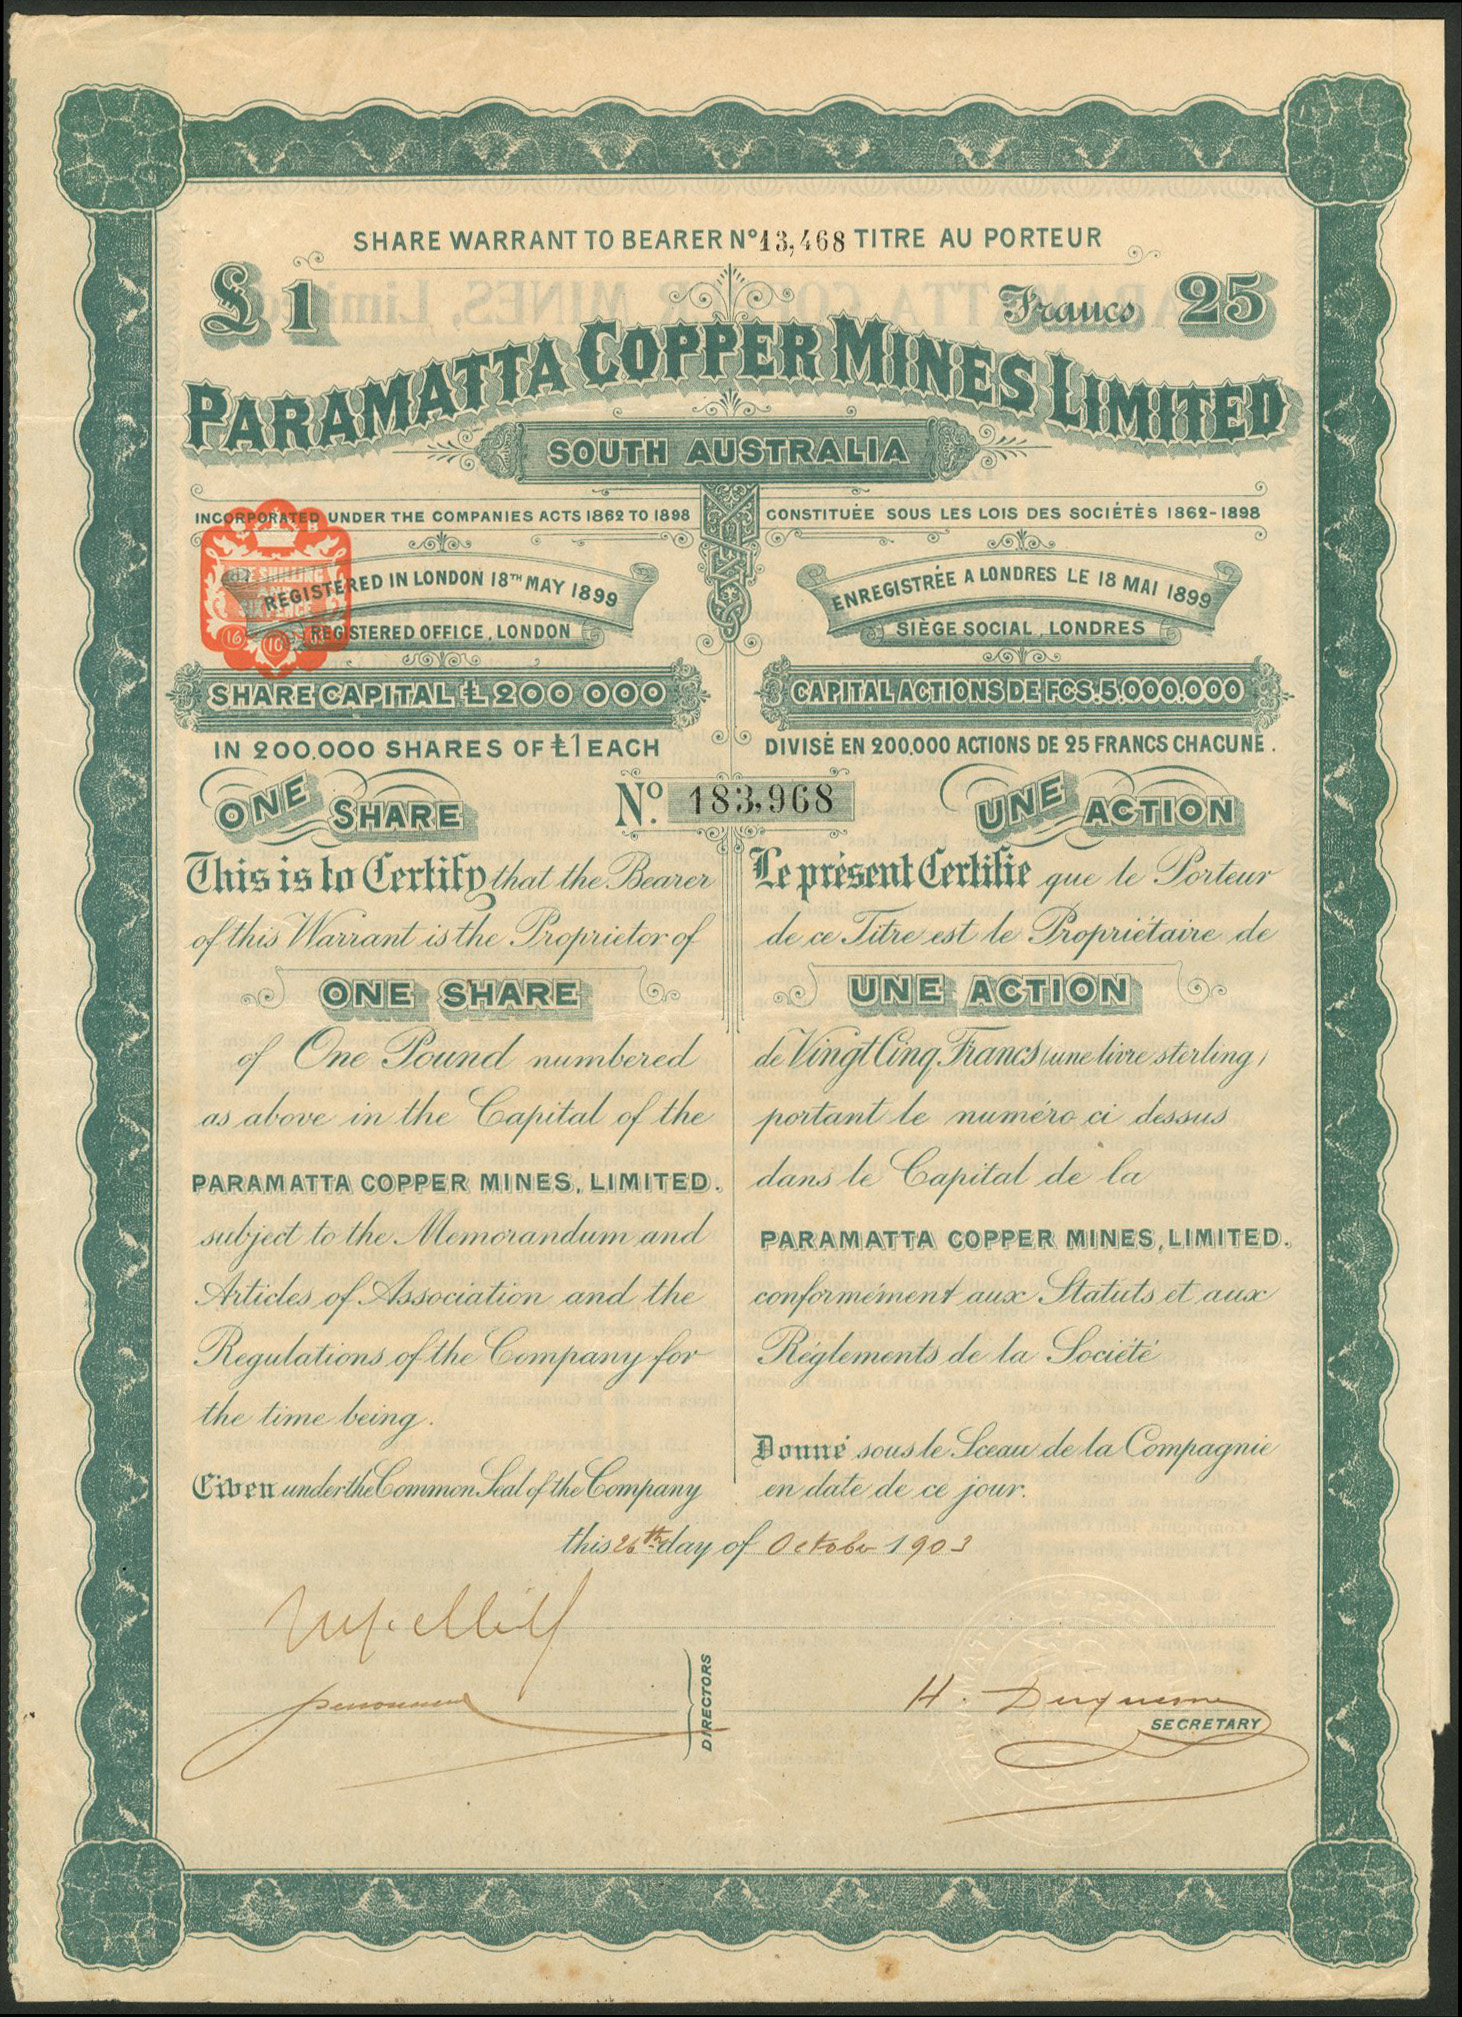 SHARE WARRANT TO BEARER Nº 13,468 TITRE AU PORTEUR
£1
Francs 25
PARAMATTA COPPER MINES LIMITED
SOUTH AUSTRALIA
INCORPORATED UNDER THE COMPANIES ACTS 1862 TO 1898
REGISTERED IN LONDON 18TH MAY 1899
REGISTERED OFFICE, LONDON
SHILLING
16 10
SHARE CAPITAL £200 000
IN 200.000 SHARES OF £1 EACH
CONSTITUÉE SOUS LES LOIS DES SOCIÉTÉS 1862-1898
ENREGISTRÉE A LONDRES LE 18 MAI 1899
SIÈGE SOCIAL, LONDRES
CAPITAL ACTIONS DE FCS. 5.000.000
DIVISÉ EN 200,000 ACTIONS DE 25 FRANCS CHACUNE.
ONE SHARE
Nº. 183,968
UNE ACTION
This is to Certify that the Bearer
of this Warrant is the Proprietor of
ONE SHARE
of One Pound numbered
as above in the Capital of the
PARAMATTA COPPER MINES, LIMITED.
subject to the Memorandum and
Articles of Association and the
Regulations of the Company for
the time being.
Given under the Common Seal of the Company
Le présent Certifie que le Porteur
de ce Titre est le Propriétaire de
UNE ACTION
de Vingt Cinq Francs (une livre sterling)
portant le numéro ci dessus
dans le Capital de la
PARAMATTA COPPER MINES, LIMITED.
conformément aux Statuts et aux
Réglements de la Société
Donné sous le Sceau de la Compagnie
en date de ce jour.
this 26th day of October 1903
DIRECTORS
H. Duquesne
SECRETARY